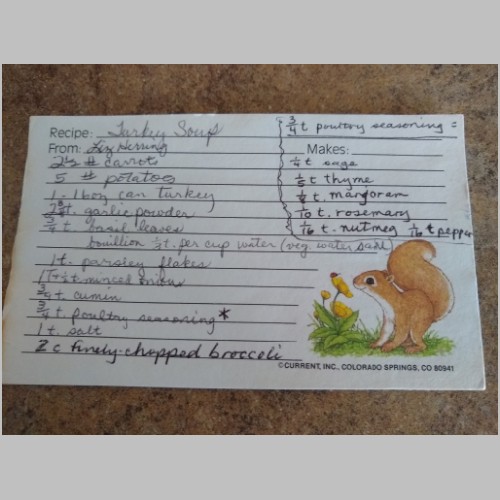 Recipe: Turkey Soup
From: Liz Herring
2 1/2 # carrot
5 # potatoes
1 - 16 oz can turkey
t. garlic powder
3/4 t. basil leaves
bouillon 1/2 t. per cup water (veg. water said)
1 t. parsley flakes
1 T + 1/2 t. minced onion
3/4 t. cumin
3/4 t. poultry seasoning *
1 t. salt
2 c finely-chopped broccoli
3/4 t poultry seasoning =
Makes:
1/4 t sage
1/5 t thyme
t. marjoram
1/10 t. rosemary
1/16 t. nutmeg 1/16 t pepper
©CURRENT, INC., COLORADO SPRINGS, CO 80941